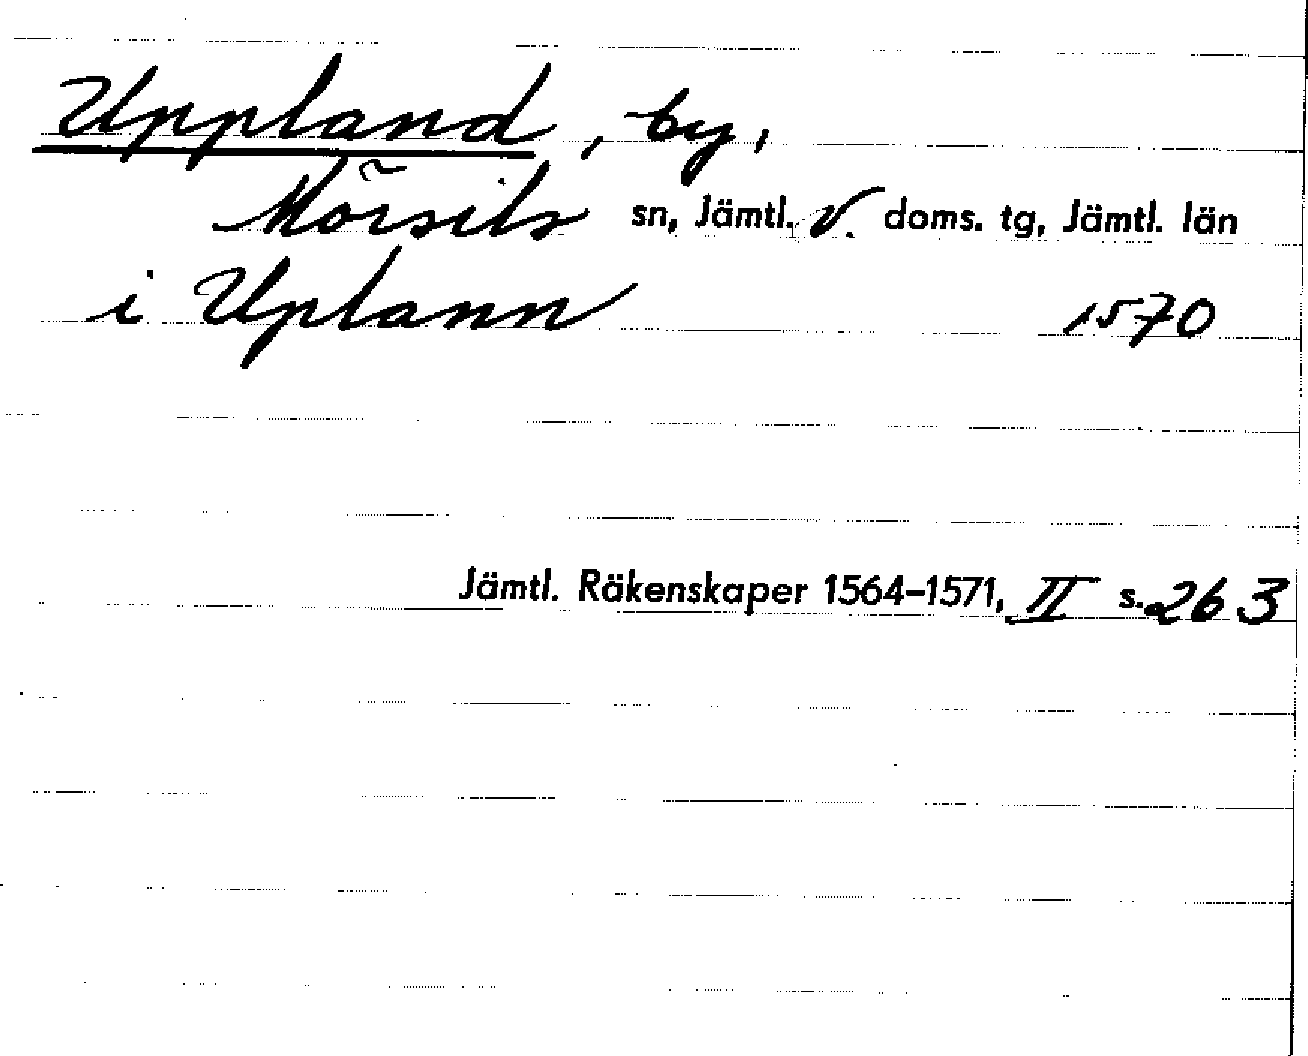 Uppland, by,
Mörsils sn, Jämtl. v. doms. tg, Jämtl. län
i Uplann 1570
Jämtl. Räkenskaper 1564–1571, II s. 263